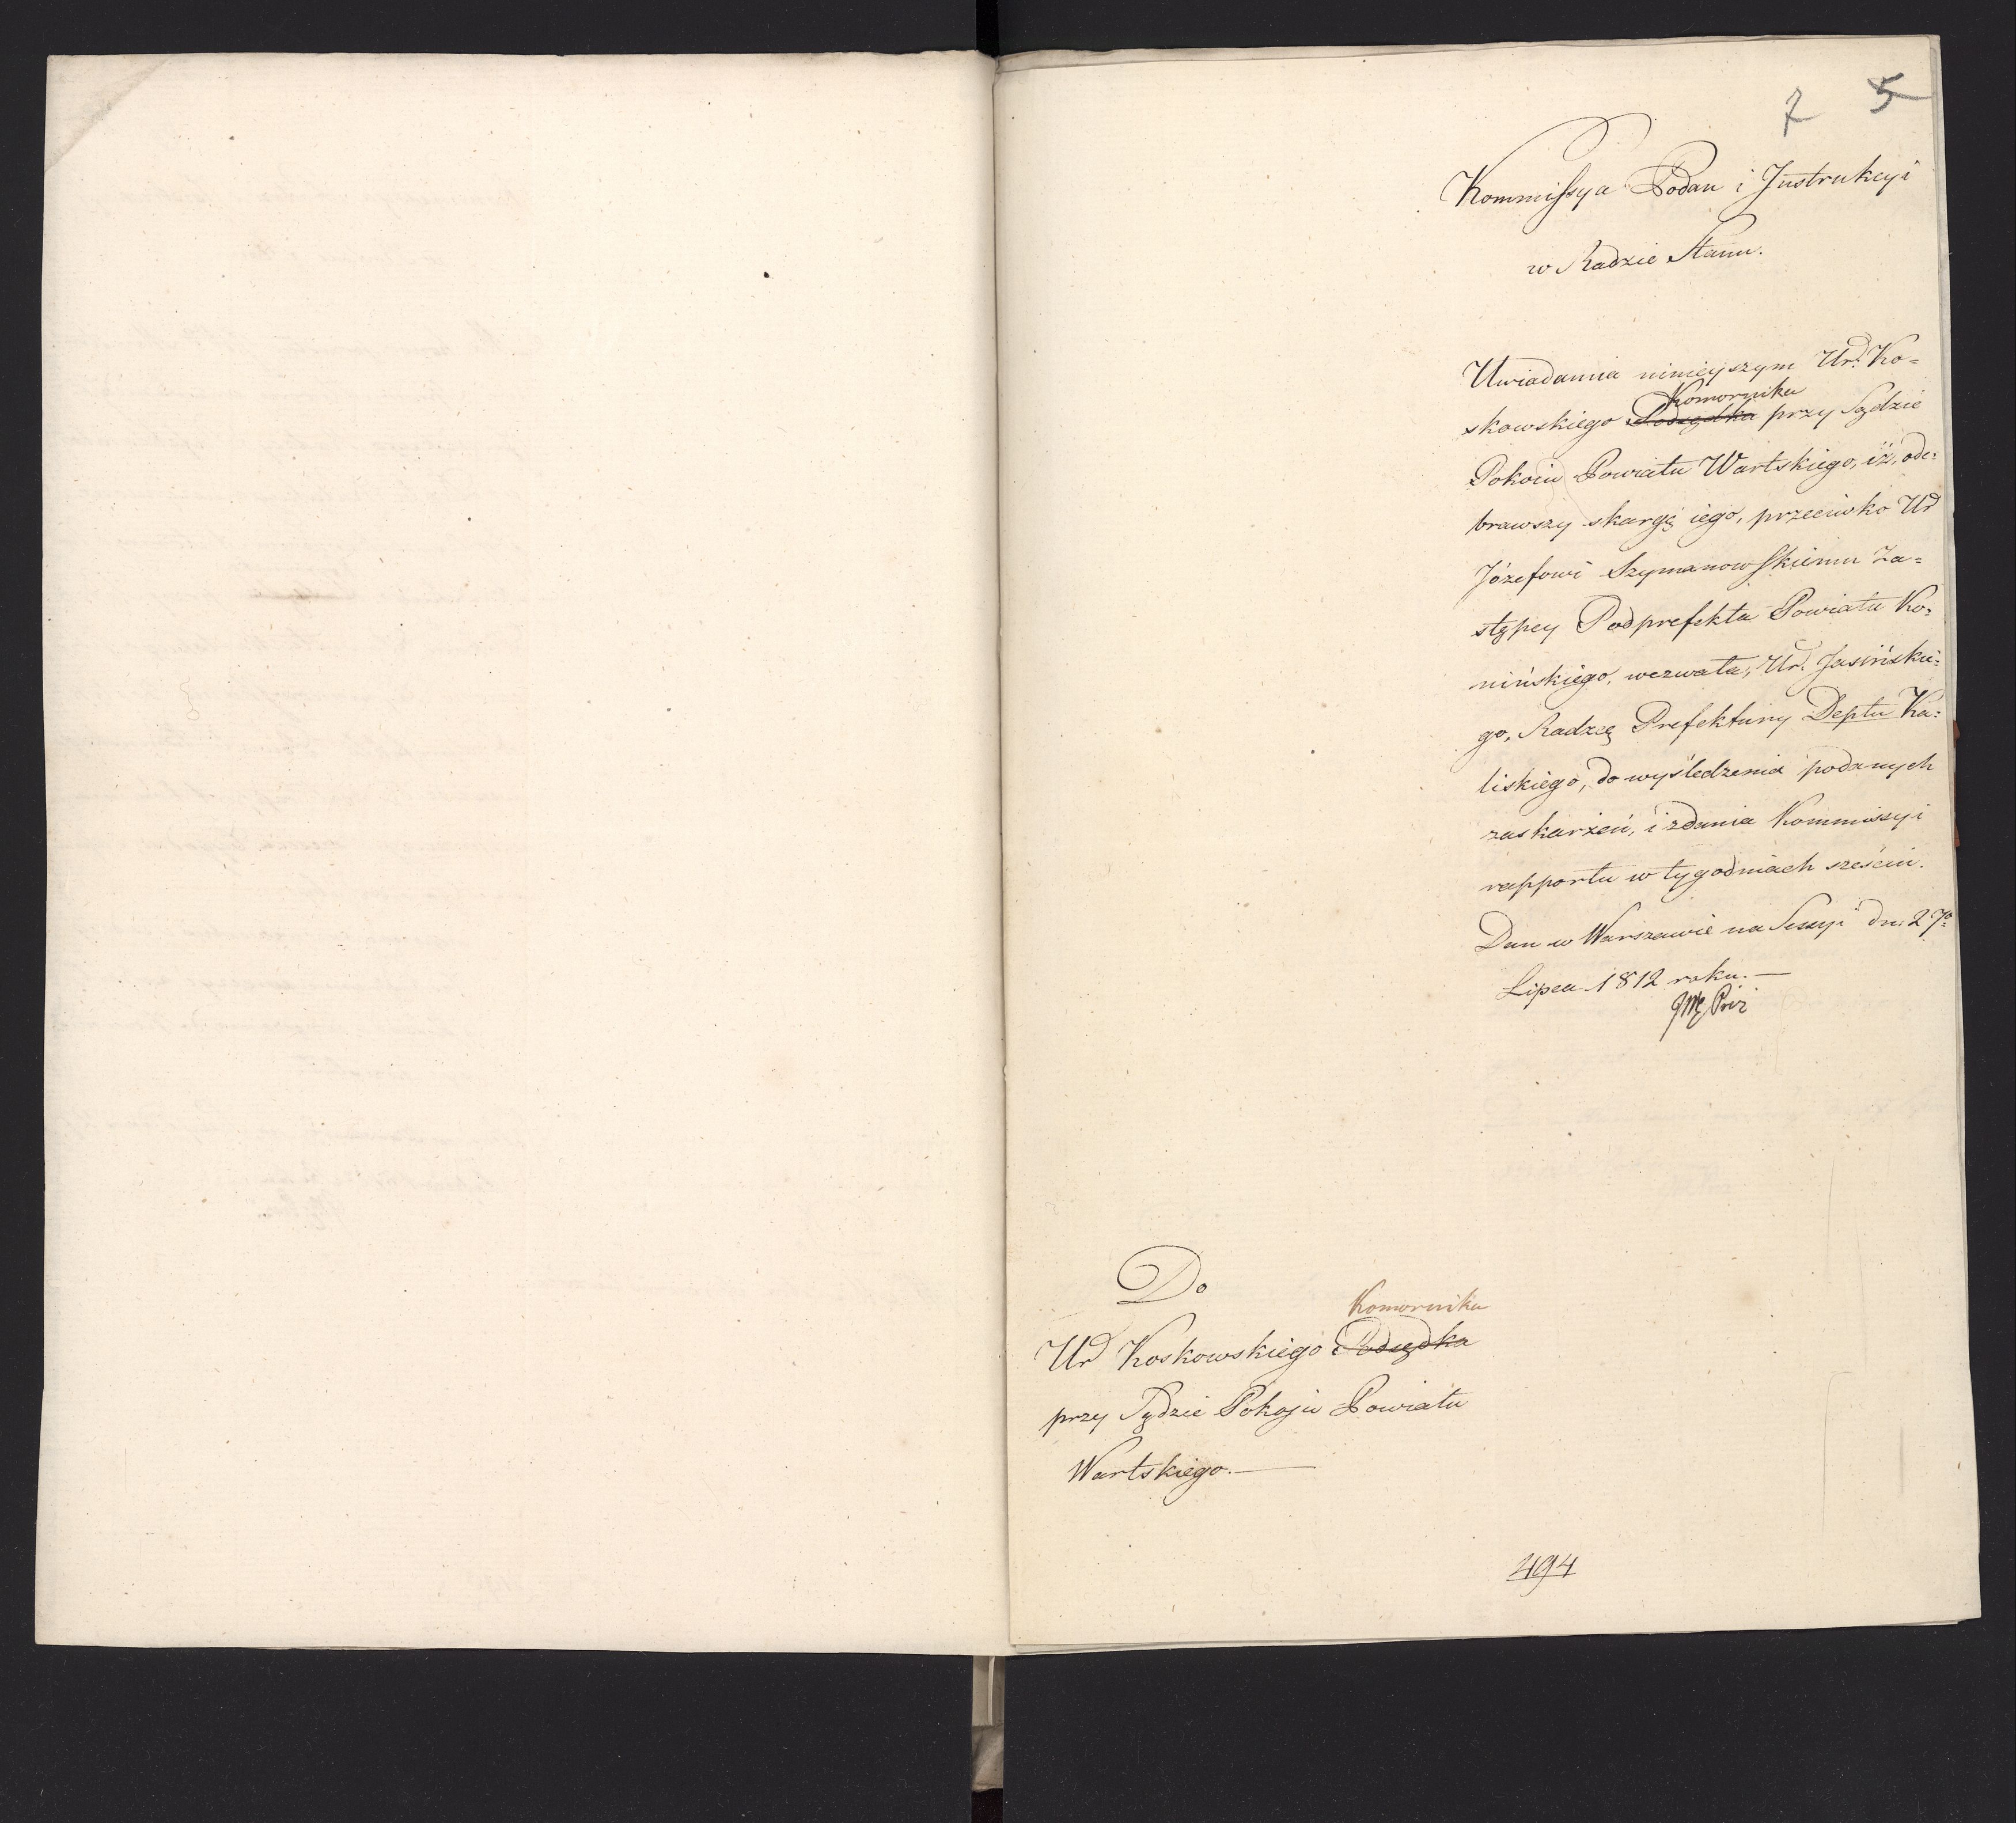 7 5
Kommissya Podan i Instrukcyi
w Radzie Stanu.
Uwiadamia ninieyszym Ur. Ko=
Komornika
skowskiego Podsędka przy Sądzie
Pokoiu Powiatu Wartskiego, iż, ode=
brawszy skargę iego, przeciwko Ur
Józefowi Szymanowskiemu Za=
stępcy Podprefekta Powiatu Ko=
nińskiego, wezwała, Ur. Jasińskie=
go, Radzcę Prefektury Deptu Ka=
liskiego, do wyśledzenia podanych
zaskarżeń, i zdania Kommissyi
rapportu w tygodniach sześciu.
Dan w Warszawie na Sessyi dn. 27º
Lipca 1812 roku.—
Do
Komornika
Ur Koskowskiego Podsędka
przy Sądzie Pokoju Powiatu
Wartskiego.—
494